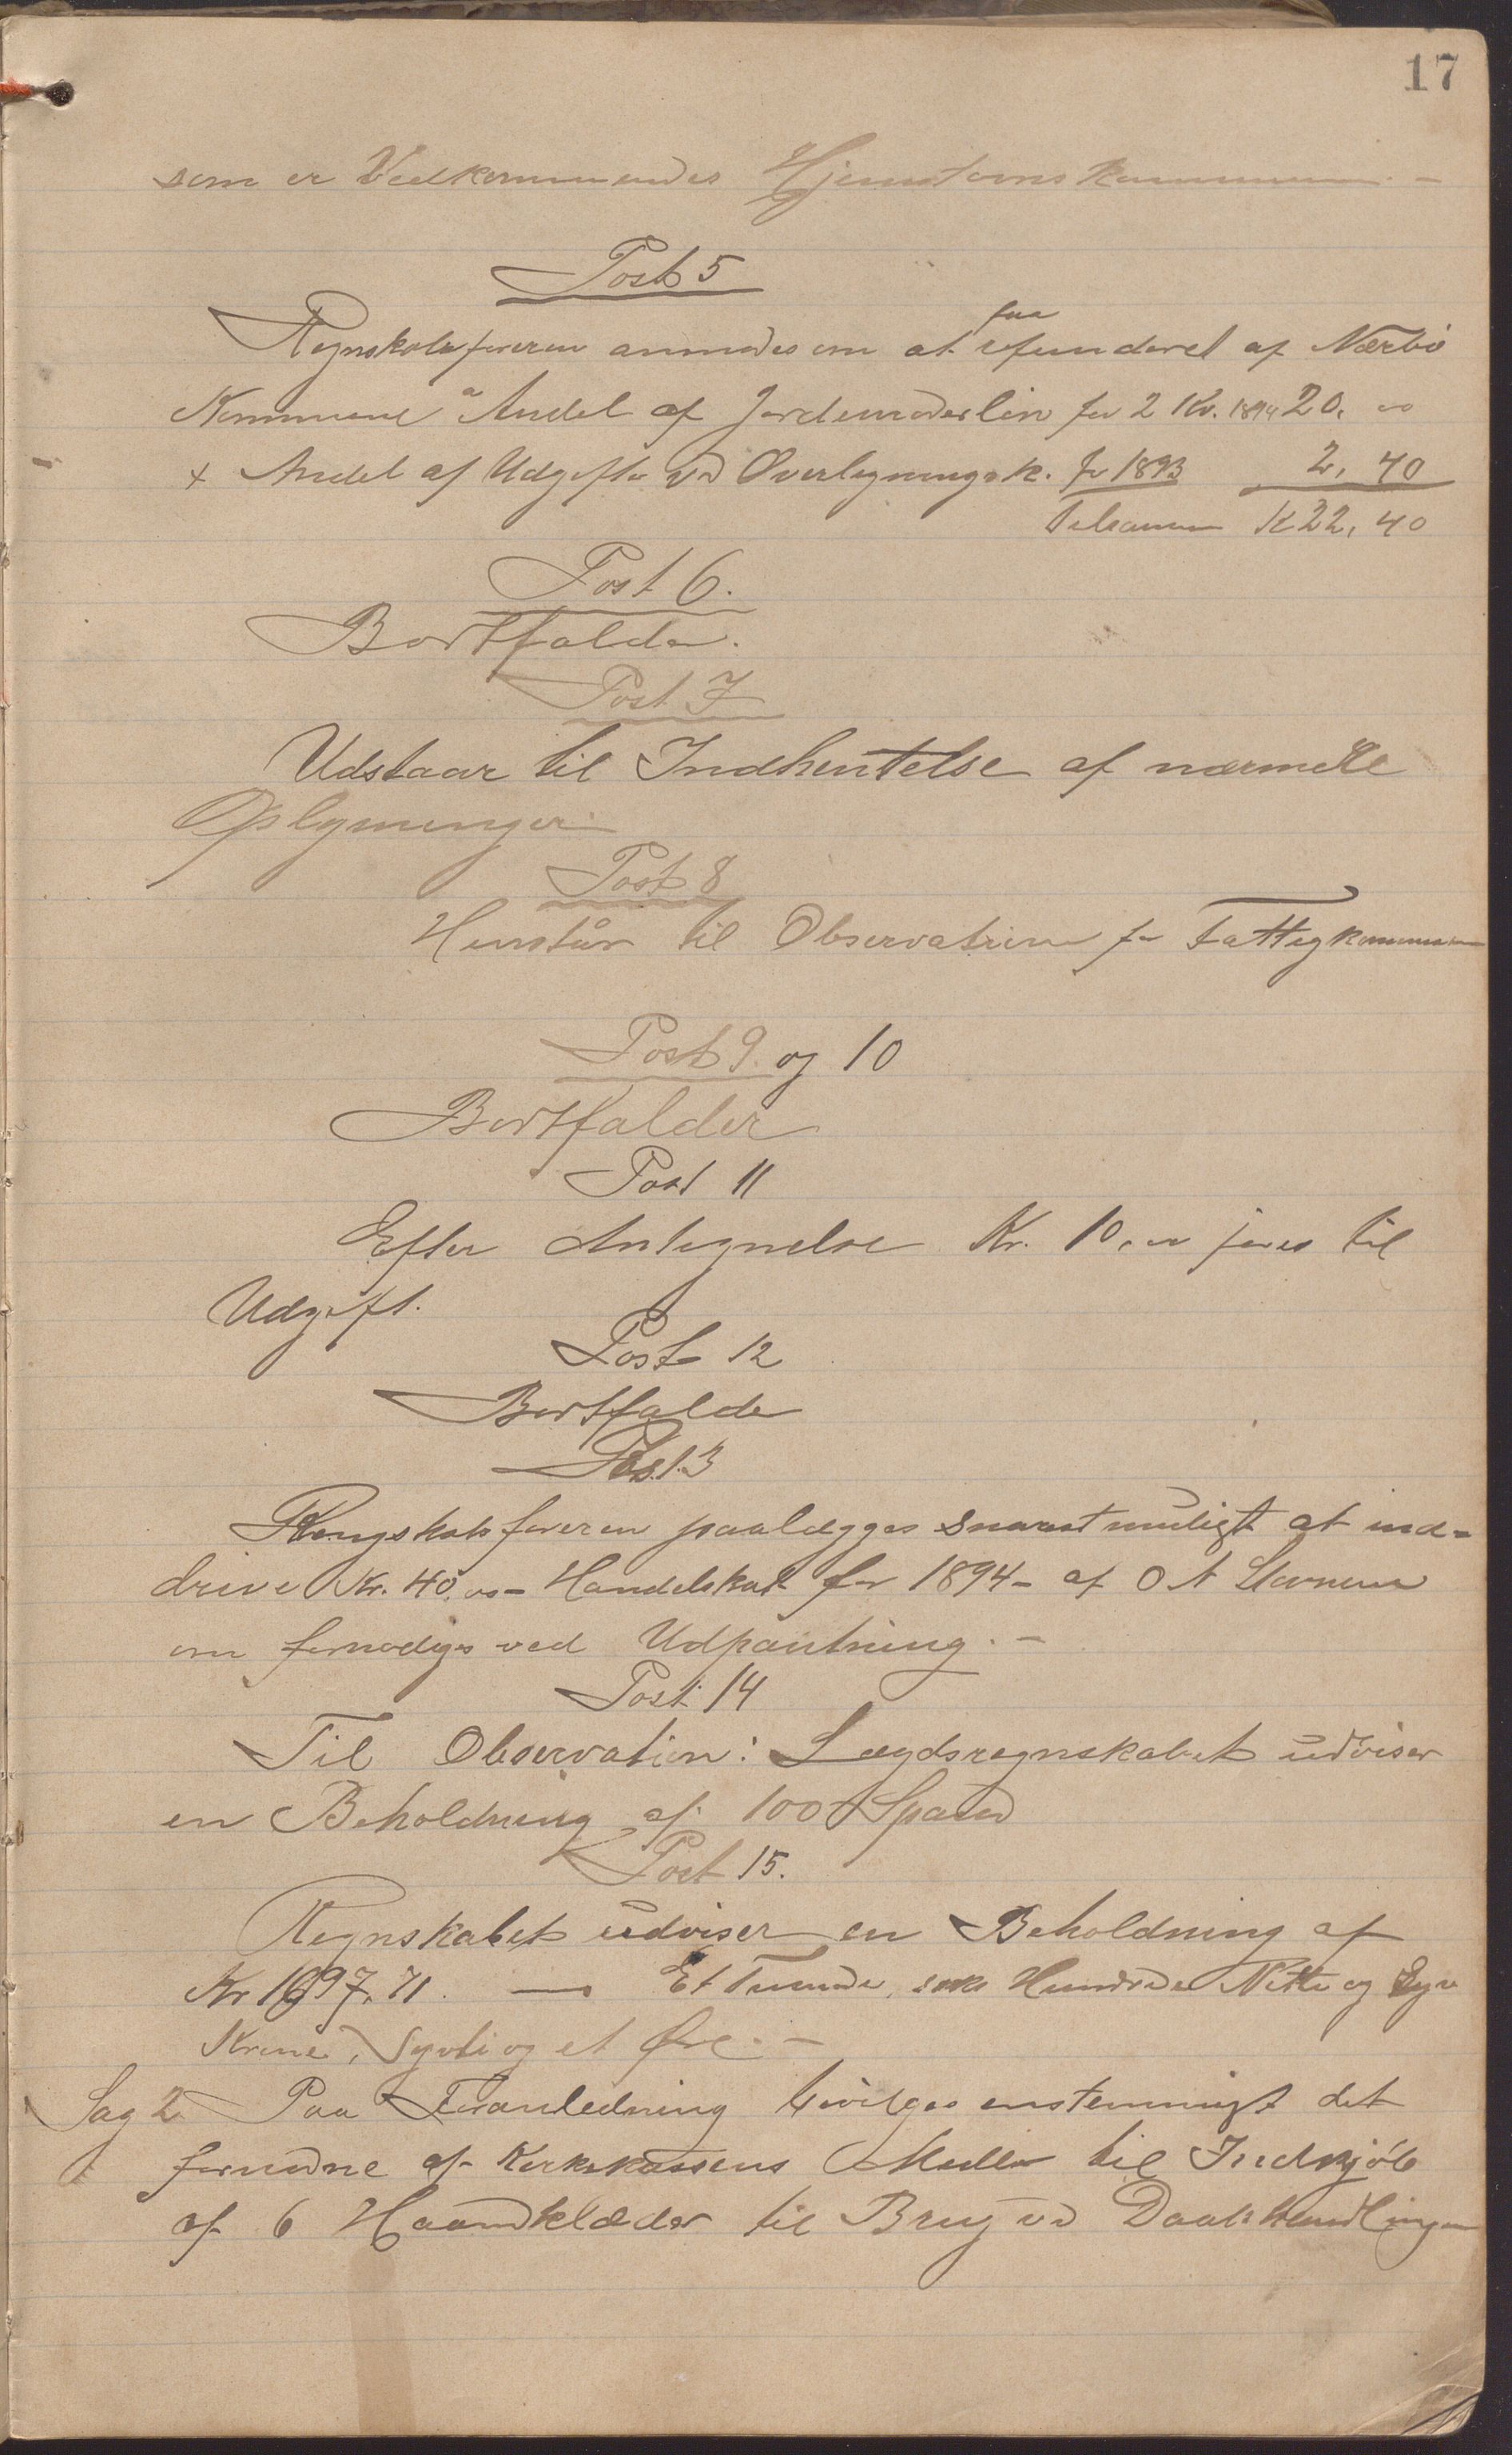 17
som er Vedkommendes Hjemstavnskommune. -
Post 5
Regnskabsføreren anmodes om at faa refunderet af Nærbø
Kommune a Andel af Jordemoderløn for 2 Kv. 1894 20, oo
+ Andel af Udgifter ved Overligningsk. for 1893 2, 40
Tilsammen K 22, 40
Post 6.
Bortfalder.
Post 7
Udstaar til Indhentelse af nærmere
Oplysninger.
Post 8
Henstår til Observation for Fattigkommissionen
Post 9. og 10
Bortfalder
Post 11
Efter Antegnelse Kr. 10, oo føres til
Udgift.
Post 12
Bortfalder
Post 13
Rengskabsføreren paalægges snarest muligt at ind-
drive Kr. 40, oo - Handelskat for 1894 - af O A
om fornødiges ved Udpantning. -
Post 14
Til Observation: Lægdsregnskabet udviser
en Beholdning af 100 Spand
Post 15.
Regnskabet udviser en Beholdning af
Kr 1697,71. — Et Tusinde, seks Hundrede Nitti og Syv
Krone, Sytti og et Øre. -
Sag 2 Paa Foranledning bevilges enstemmigt det
fornødne af Kirkekassens Midler til Indkjøb
af 6 Haandklæder til Brug ved Daabshandlingen